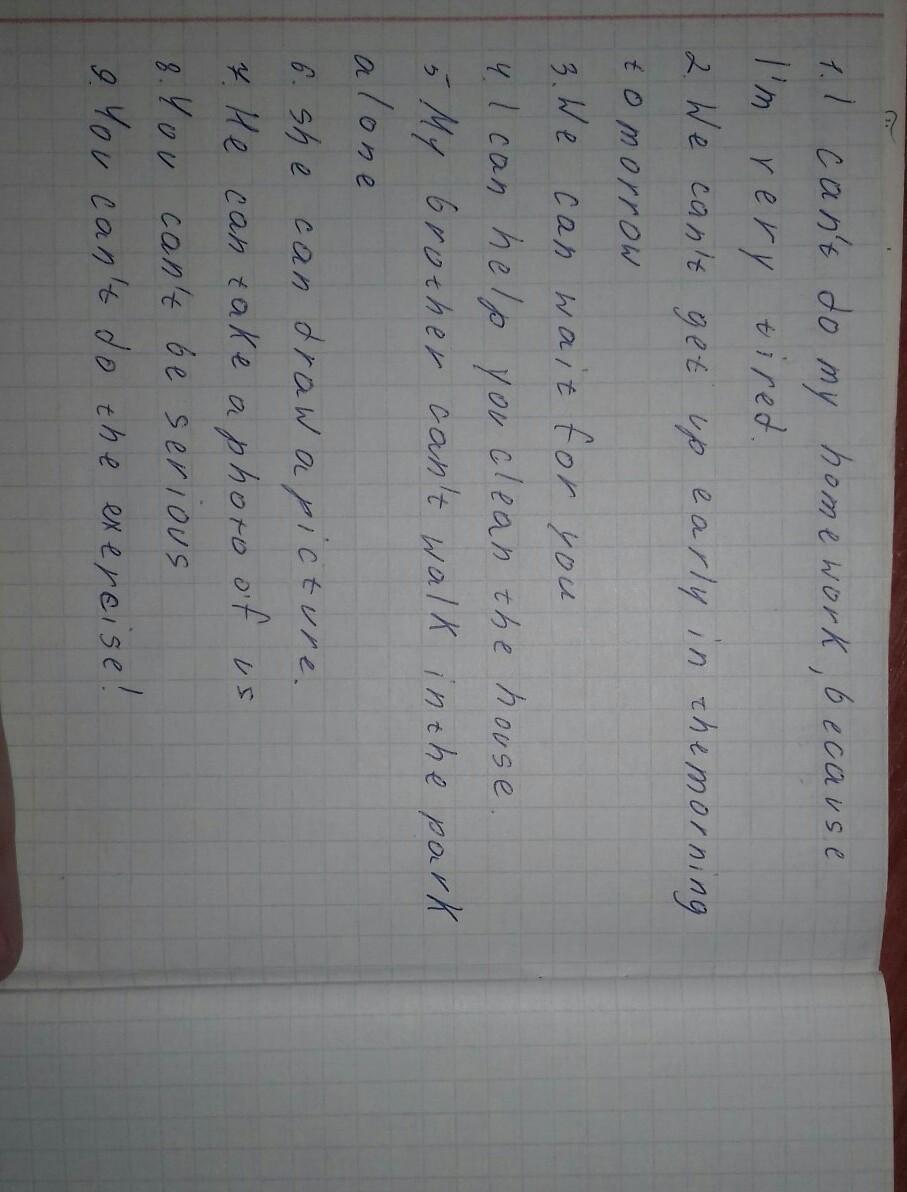 1. I can't do my homework, because
I'm very tired.
2. We can't get up early in the morning
tomorrow
3. We can wait for you
4. I can help you clean the house.
5 My brother can't walk in the park
alone
6. she can draw a picture.
7. He can take a photo of us
8. You can't be serious
9. You can't do the exercise!